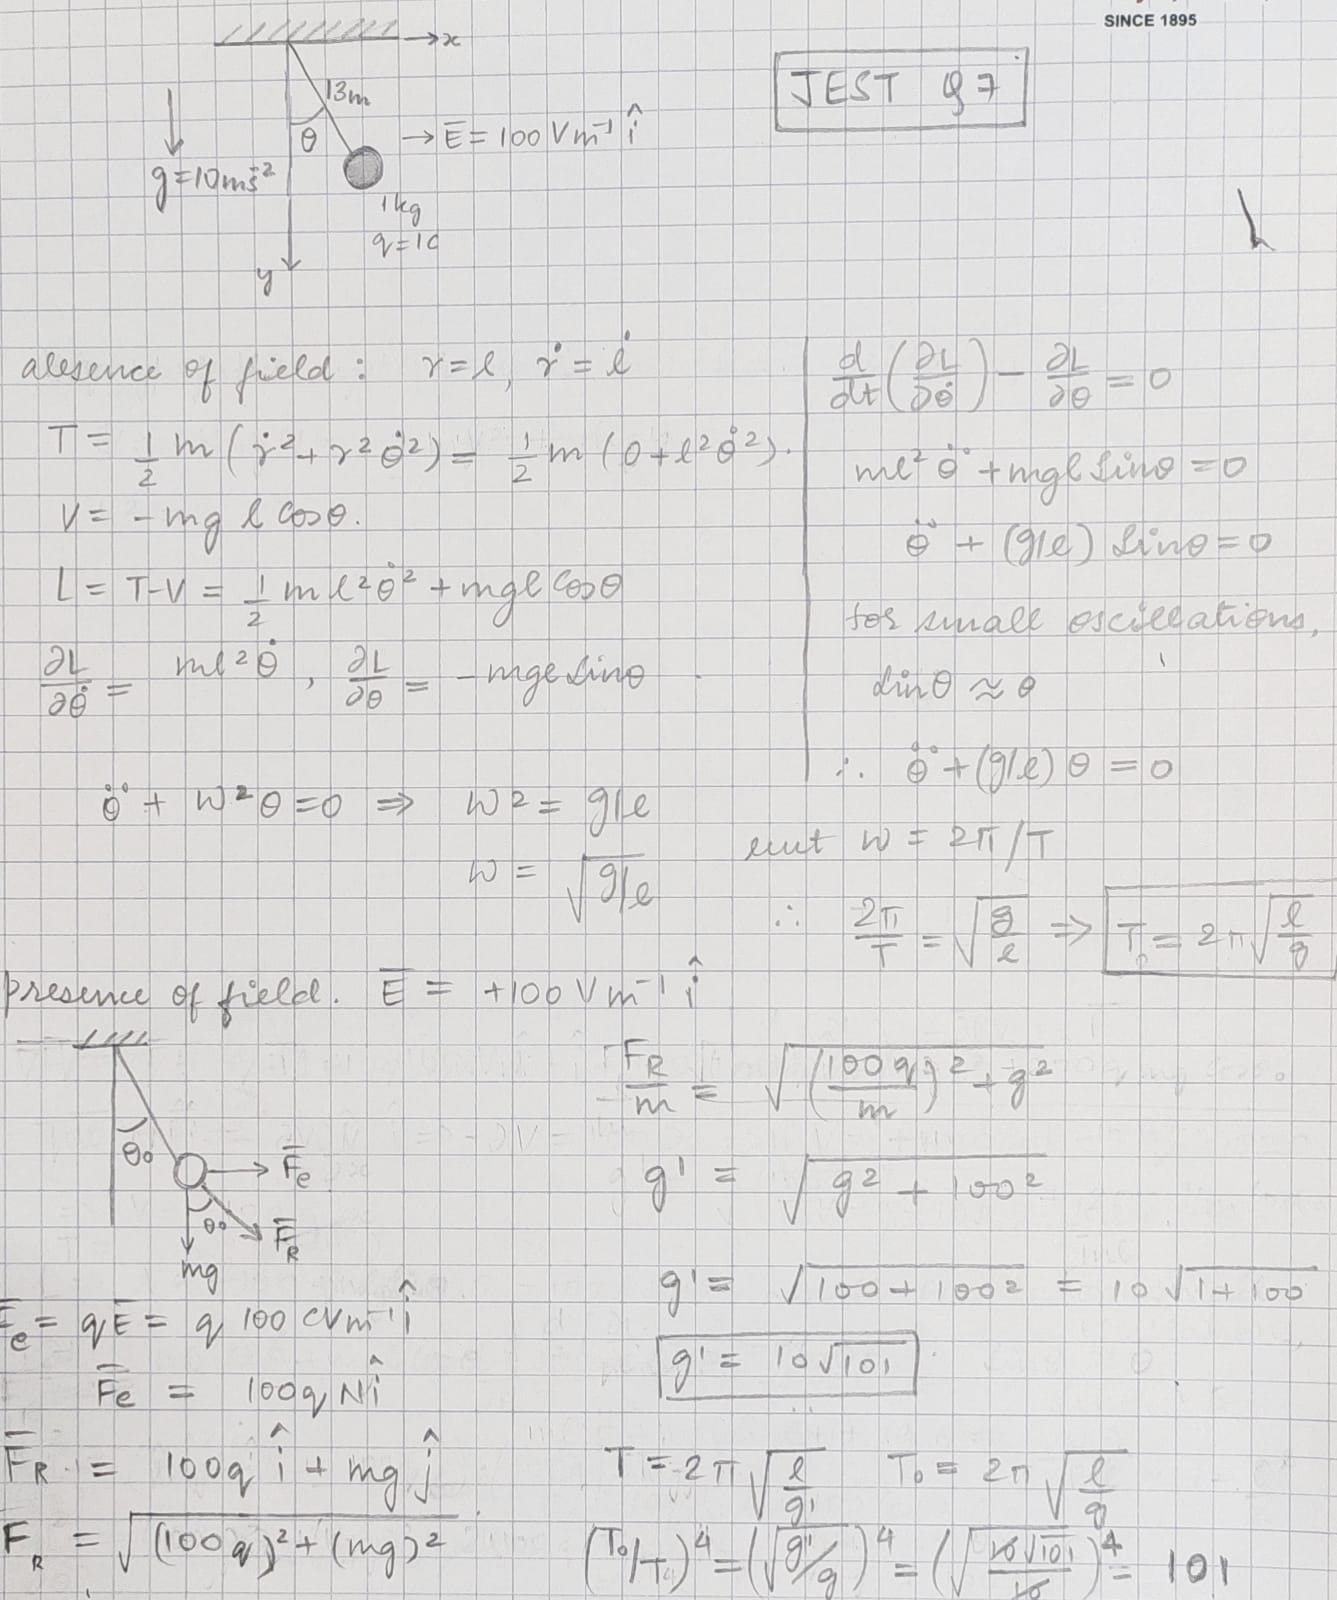 SINCE 1895
JEST Q7
→x
13m
θ
→ E̅ = 100 Vm⁻¹ î
g=10ms⁻²
1kg
q=1C
y
absence of field : r=l, ṙ = l̇
T = 1/2 m (ṙ² + r² θ̇²) = 1/2 m (0 + l² θ̇²).
V = -mg l cosθ.
L = T-V = 1/2 m l² θ̇² + mgl cosθ
∂L/∂θ̇ = ml² θ̇, ∂L/∂θ = -mgl sinθ
d/dt (∂L/∂θ̇) - ∂L/∂θ = 0
ml² θ̈ + mgl sinθ = 0
θ̈ + (g/l) sinθ = 0
for small oscillations,
sinθ ≈ θ
∴ θ̈ + (g/l) θ = 0
θ̈ + w²θ = 0 ⇒ w² = g/l
w = √g/l
but w = 2π/T
∴ 2π/T = √(g/l) ⇒ T₀ = 2π√(l/g)
presence of field. E̅ = +100 Vm⁻¹ î
θ₀
F̅e
θ₀
F̅R
mg
F̅e = qE̅ = q 100 CVm⁻¹ î
F̅e = 100q N î
F̅R = 100q î + mg ĵ
FR = √((100q)² + (mg)²)
FR/m = √((100q/m)² + g²)
g' = √(g² + 100²)
g' = √(100 + 100²) = 10√(1+100)
g' = 10√101
T = 2π√(l/g') T₀ = 2π√(l/g)
(T₀/T)⁴ = (√(g'/g))⁴ = (√(10√101/10))⁴ = 101